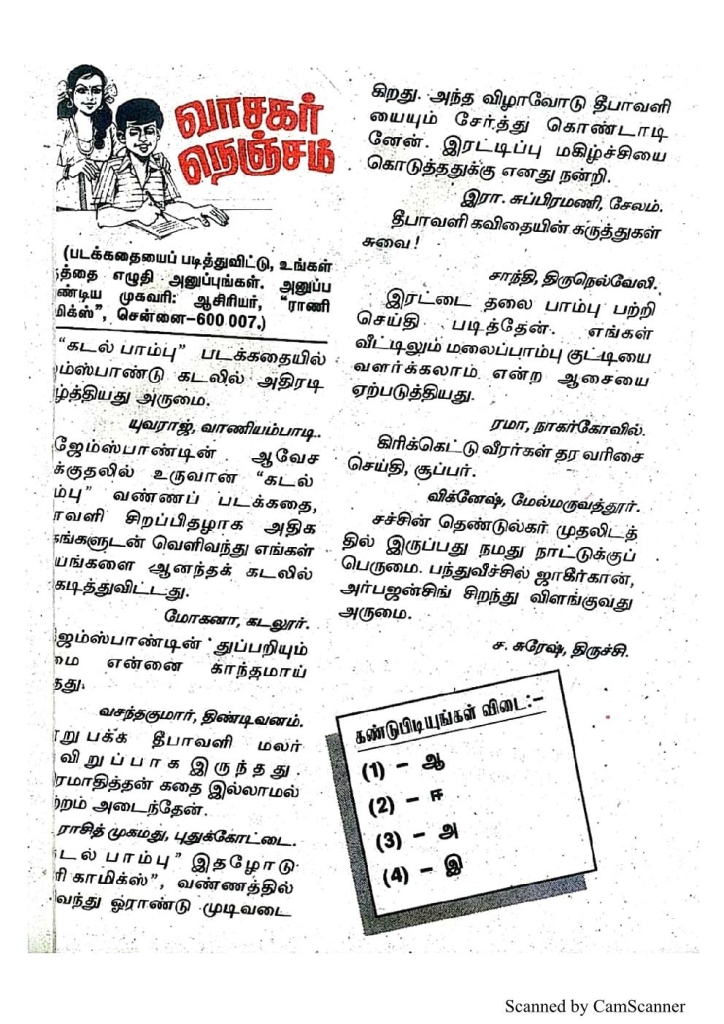 வாசகர்
நெஞ்சம்
(படக்கதையைப் படித்துவிட்டு, உங்கள்
த்தை எழுதி அனுப்புங்கள். அனுப்ப
ண்டிய முகவரி: ஆசிரியர், "ராணி
மிக்ஸ்", சென்னை-600 007.)
"கடல் பாம்பு" படக்கதையில்
ம்ஸ்பாண்டு கடலில் அதிரடி
ழ்த்தியது அருமை.
யுவராஜ், வாணியம்பாடி..
ஜேம்ஸ்பாண்டின் ஆவேச
க்குதலில் உருவான "கடல்
ம்பு" வண்ணப் படக்கதை,
ாவளி சிறப்பிதழாக அதிக
கங்களுடன் வெளிவந்து எங்கள்
யங்களை ஆனந்தக் கடலில்
கடித்துவிட்டது.
மோகனா, கடலூர்.
ஜேம்ஸ்பாண்டின் துப்பறியும்
மை என்னை காந்தமாய்
ந்தது.
வசந்தகுமார், திண்டிவனம்.
று பக்க தீபாவளி மலர்
விறுப்பாக இருந்தது.
ரமாதித்தன் கதை இல்லாமல்
ற்றம் அடைந்தேன்.
ராசித் முகமது, புதுக்கோட்டை.
டல் பாம்பு" இதழோடு
ி காமிக்ஸ்", வண்ணத்தில்
வந்து ஓராண்டு முடிவடை
கிறது. அந்த விழாவோடு தீபாவளி
யையும் சேர்த்து கொண்டாடி
னேன். இரட்டிப்பு மகிழ்ச்சியை
கொடுத்ததுக்கு எனது நன்றி.
இரா. சுப்பிரமணி, சேலம்.
தீபாவளி கவிதையின் கருத்துகள்
சுவை!
சாந்தி, திருநெல்வேலி.
இரட்டை தலை பாம்பு பற்றி
செய்தி படித்தேன். எங்கள்
வீட்டிலும் மலைப்பாம்பு குட்டியை
வளர்க்கலாம் என்ற ஆசையை
ஏற்படுத்தியது.
ரமா, நாகர்கோவில்.
கிரிக்கெட்டு வீரர்கள் தர வரிசை
செய்தி, சூப்பர்.
விக்னேஷ், மேல்மருவத்தூர்.
சச்சின் தெண்டுல்கர் முதலிடத்
தில் இருப்பது நமது நாட்டுக்குப்
பெருமை. பந்துவீச்சில் ஜாகீர்கான்,
அர்பஜன்சிங் சிறந்து விளங்குவது
அருமை.
ச. சுரேஷ், திருச்சி.
கண்டுபிடியுங்கள் விடை:-
(1) - ஆ
(2) - ஈ
(3) - அ
(4) - இ
Scanned by CamScanner